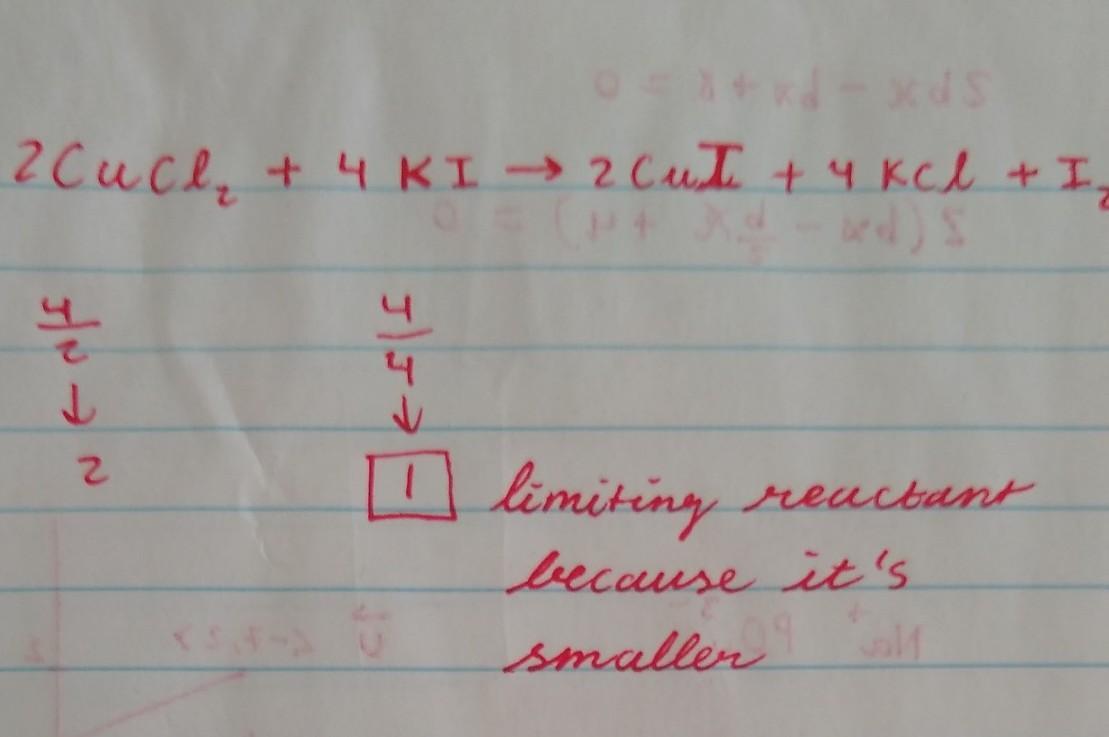 2CuCl₂ + 4 KI → 2 CuI + 4 KCl + I₂
4/2 4/4
↓ ↓
2 1 limiting reactant
because it's
smaller